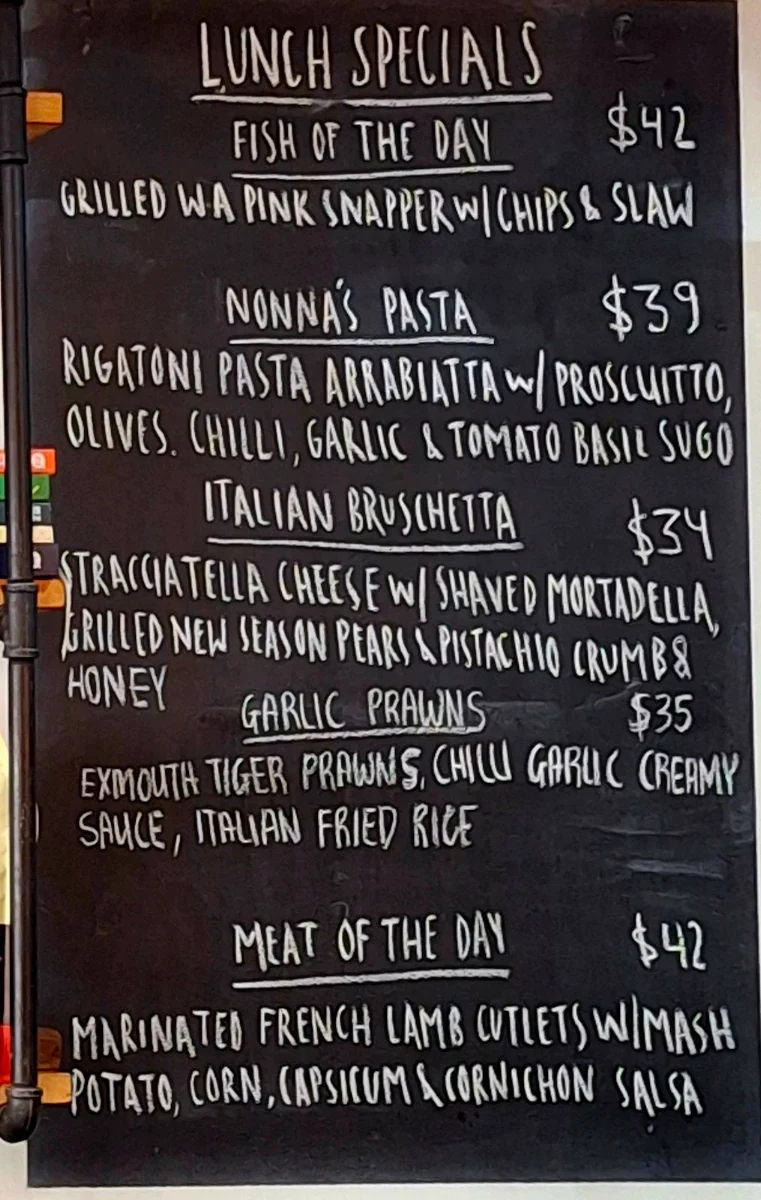 LUNCH SPECIALS
FISH OF THE DAY $42
GRILLED WA PINK SNAPPER W/ CHIPS & SLAW
NONNA'S PASTA $39
RIGATONI PASTA ARRABIATTA W/ PROSCUITTO,
OLIVES. CHILLI, GARLIC & TOMATO BASIL SUGO
ITALIAN BRUSCHETTA $34
STRACCIATELLA CHEESE W/ SHAVED MORTADELLA,
GRILLED NEW SEASON PEARS & PISTACHIO CRUMB &
HONEY
GARLIC PRAWNS $35
EXMOUTH TIGER PRAWNS, CHILLI GARLIC CREAMY
SAUCE, ITALIAN FRIED RICE
MEAT OF THE DAY $42
MARINATED FRENCH LAMB CUTLETS W/MASH
POTATO, CORN, CAPSICUM & CORNICHON SALSA